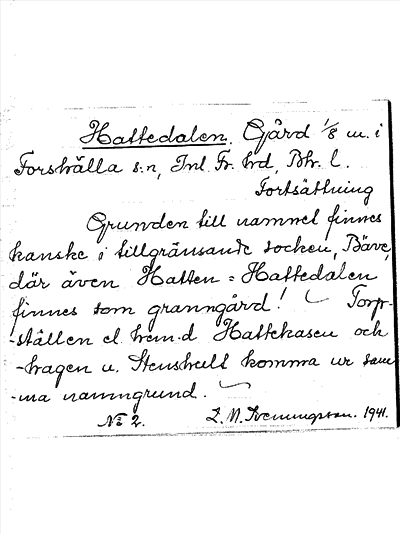 Hattedalen. Gård 1/8 m. i
Forshälla s:n, Inl. Fr. hrd, Bhs. l.
Fortsättning
Grunden till namnet finnes
kanske i tillgränsande socken, Bäve,
där även Hatten = Hattedalen
finnes som granngård! Torp-
-ställen el. hem.d Hattekasen och
-hagen u. Stenshult komma ur sam-
-ma namngrund.
No 2. 1941.